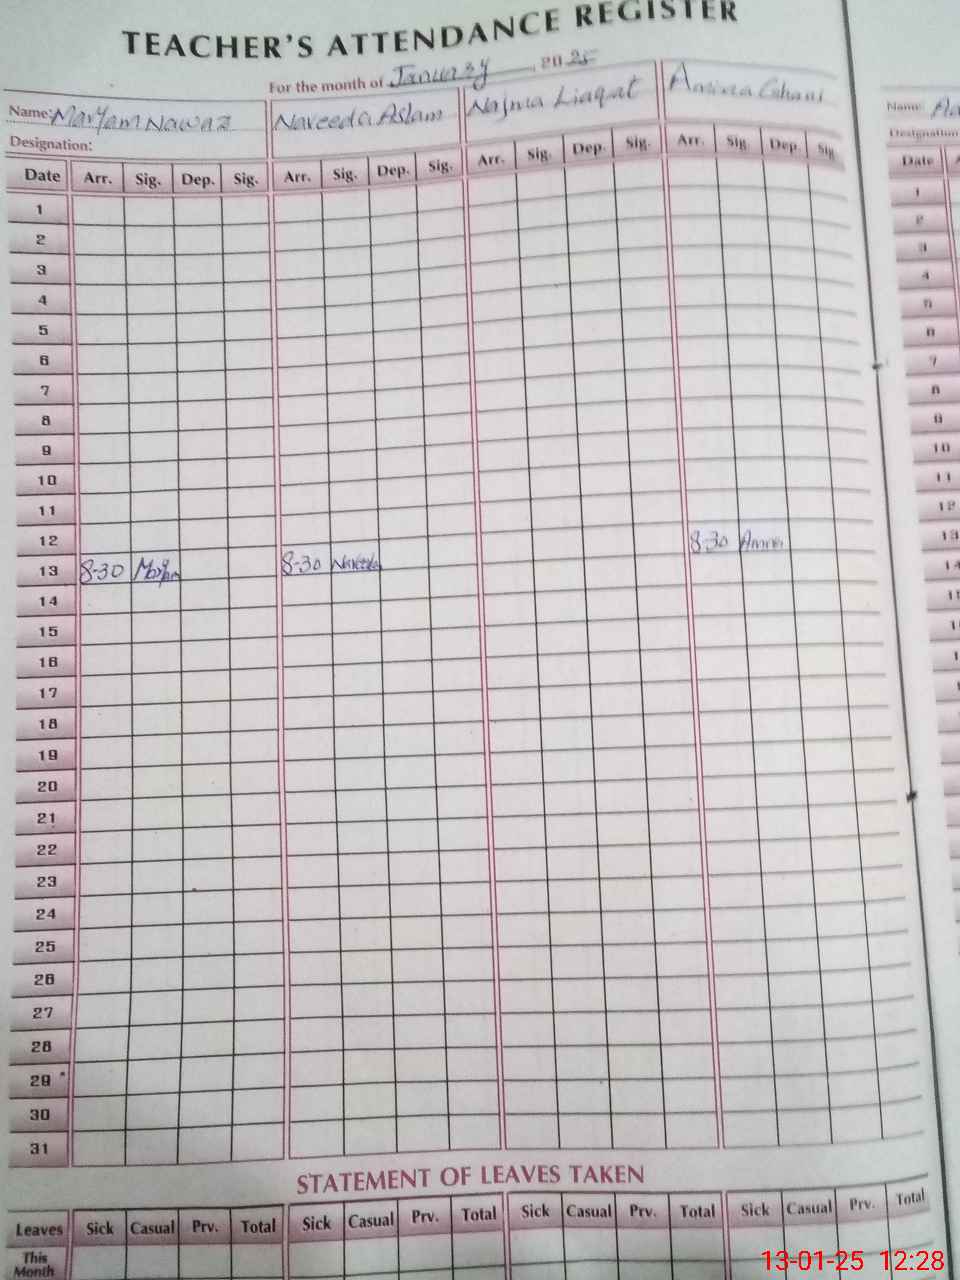 TEACHER'S ATTENDANCE REGISTER
For the month of January, 2025
Name: Maryam Nawaz Naveeda Aslam Najma Liaqat Amina Ghani
Designation:
Date Arr. Sig. Dep. Sig. Arr. Sig. Dep. Sig. Arr. Sig. Dep. Sig. Arr. Sig. Dep. Sig.
1
2
3
4
5
6
7
8
9
10
11
12
13 8-30 Maryam 8-30 Naveeda 8-30 Amina
14
15
16
17
18
19
20
21
22
23
24
25
26
27
28
29
30
31
STATEMENT OF LEAVES TAKEN
Leaves Sick Casual Prv. Total Sick Casual Prv. Total Sick Casual Prv. Total Sick Casual Prv. Total
This
Month
Name:
Designation
Date
1
2
3
4
5
6
7
8
9
10
11
12
13
14
13-01-25 12:28